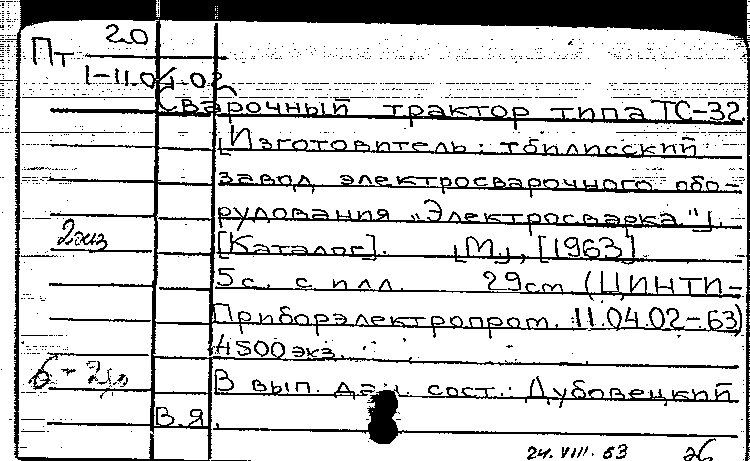 20
Пт
1-11.04.02
Сварочный трактор типа ТС-32.
[Изготовитель: тбилисский
завод электросварочного обо-
рудования „Электросварка"].
2 экз
[Каталог]. [М], [1963]
5с. с илл. 29см (ЦИНТИ-
Приборэлектропром. 11.04.02-63)
4500 экз.
В вып. дан. сост.: Дубовецкий
В.Я.
24.VIII.63